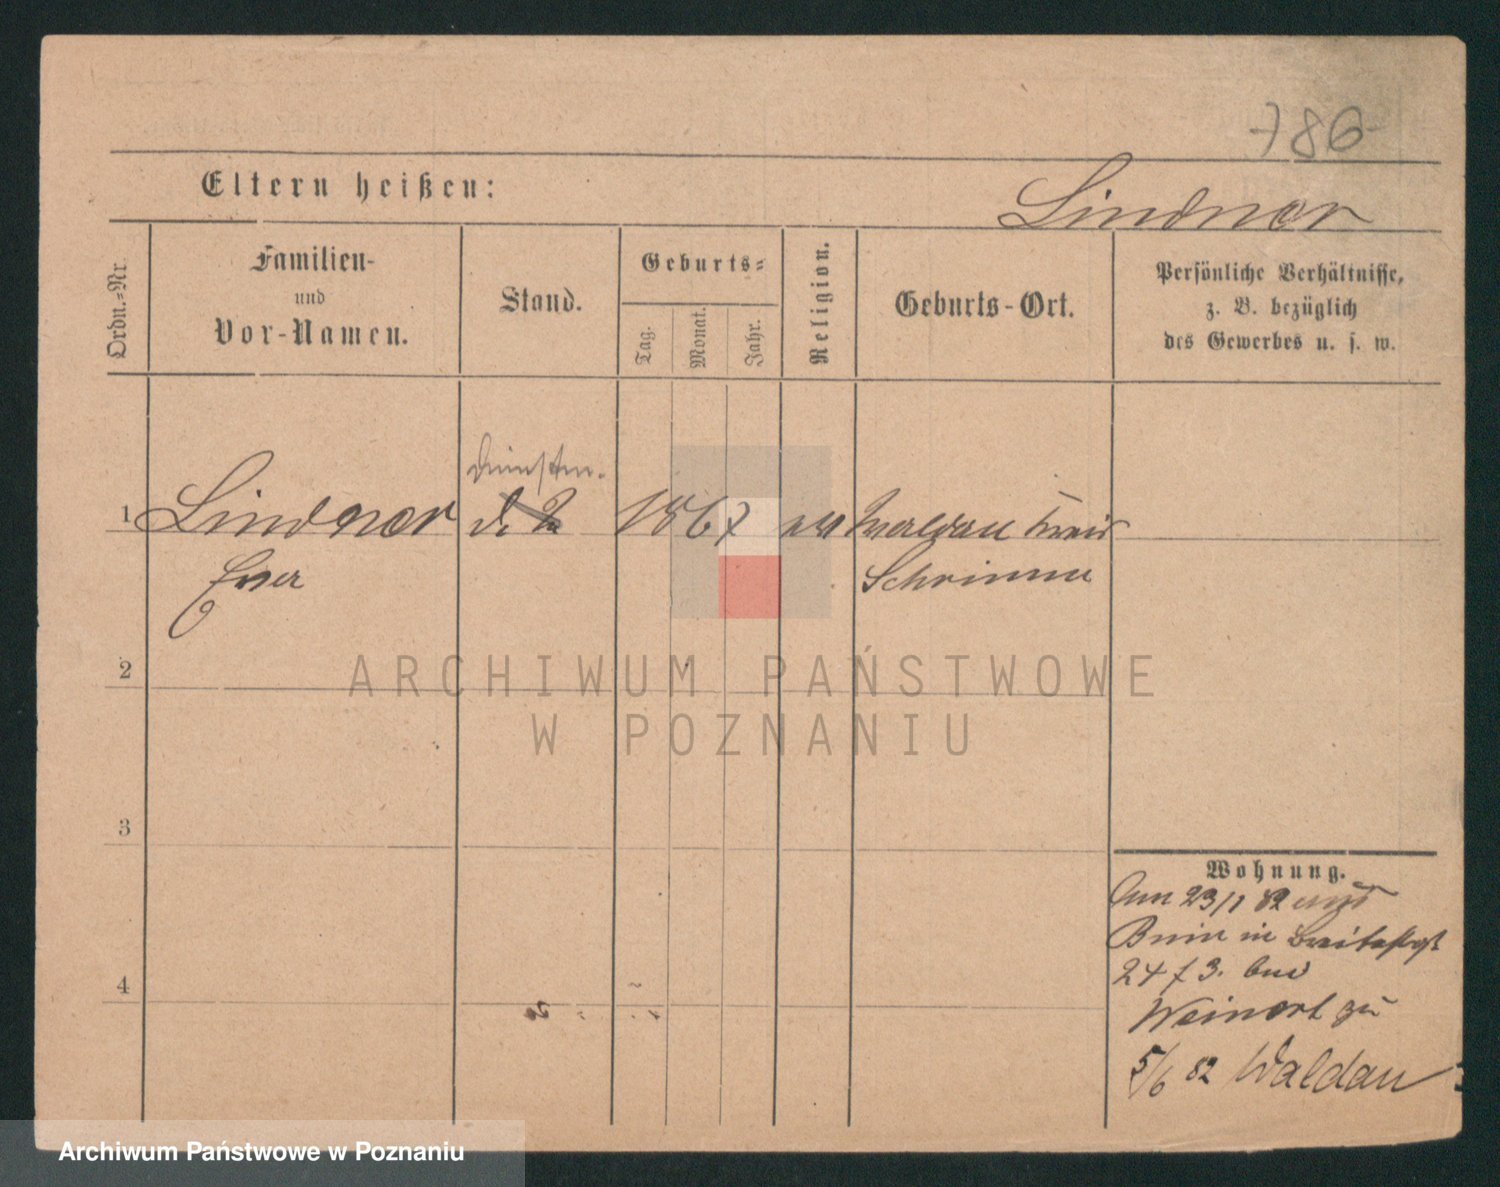 786
Eltern heißen:
Lindner
Ordn.=Nr.
Familien-
und
Vor-Namen.
Stand.
Geburts=
Tag.
Monat.
Jahr.
Religion.
Geburts-Ort.
Persönliche Verhältnisse,
z. B. bezüglich
des Gewerbes u. s. w.
1
Lindner
1867
Waldau Kreis
Schrimm
2
ARCHIWUM PAŃSTWOWE
W POZNANIU
3
Wohnung.
23/1 82
Bnin in Breitestr
24 f 3. bei
4
Weinert zu
5/6 82 Waldau
Archiwum Państwowe w Poznaniu